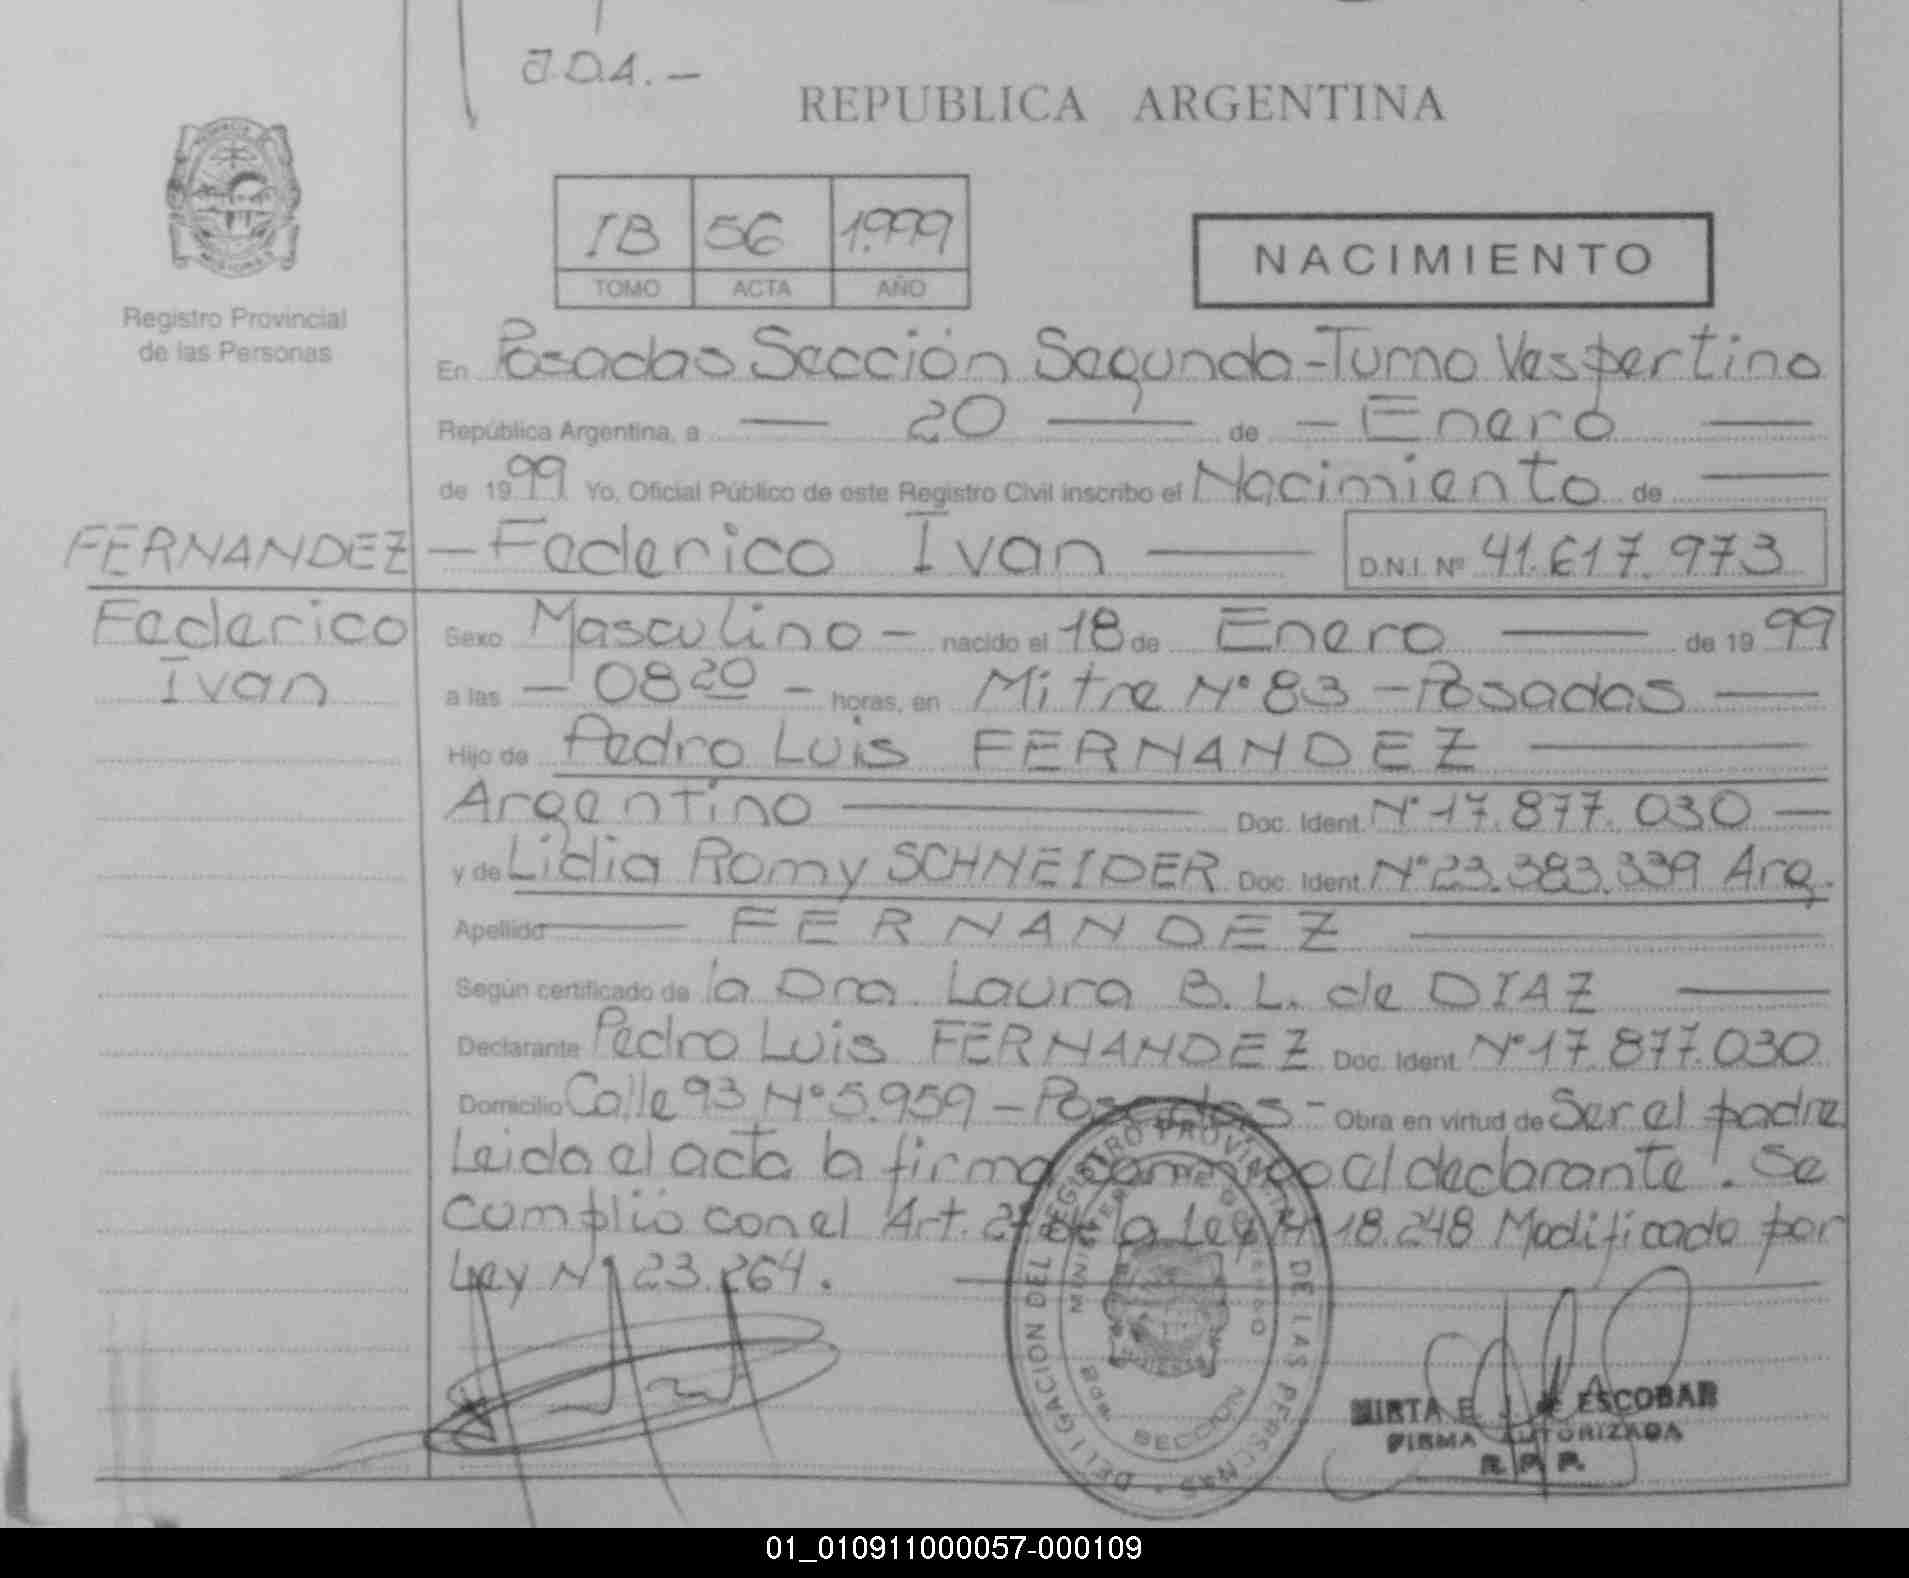 J.D.A.-
REPUBLICA ARGENTINA
IB 56 1.999
TOMO ACTA AÑO
NACIMIENTO
Registro Provincial
de las Personas
En Posadas Sección Segunda-Turno Vespertino
República Argentina, a — 20 — de — Enero —
de 1999 Yo, Oficial Público de este Registro Civil inscribo el Nacimiento de —
FERNANDEZ — Federico Ivan — D.N.I. Nº 41.617.973
Federico
Ivan
Sexo Masculino — nacido el 18 de Enero — de 1999
a las — 08 20 — horas, en Mitre Nº 83 — Posadas —
Hijo de Pedro Luis FERNANDEZ —
Argentino — Doc. Ident. Nº 17.877.030 —
y de Lidia Romy SCHNEIDER Doc. Ident. Nº 23.383.339 Arg.
Apellido — FERNANDEZ —
Según certificado de la Dra. Laura B. L. de DIAZ —
Declarante Pedro Luis FERNANDEZ Doc. Ident. Nº 17.877.030
Domicilio Calle 93 Nº 5.959 — Posadas - Obra en virtud de Ser el padre
Leida el acta la firma conmigo el declarante. Se
cumplió con el Art. 2º de la Ley Nº 18.248 Modificado por
Ley Nº 23.264.
DELEGACION DEL REGISTRO PROVINCIAL DE LAS PERSONAS
MINISTERIO DE GOBIERNO
SECCION
MIRTA E. J. de ESCOBAR
FIRMA AUTORIZADA
R. P. P.
01_010911000057-000109